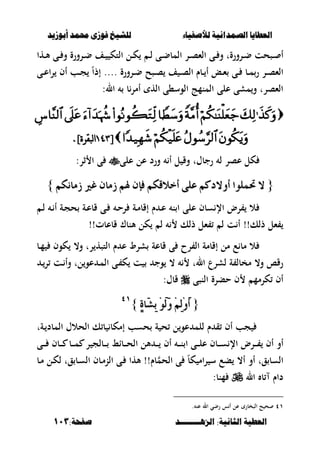 العطايا الصمدانية للأصفياء
للشيخ فوزى محمد أبوزيد
أصبحت ضرورة، وفى العصر الماضى لم يكن التكييف ضرورة وفى هذا
العصر ربما فى بعض أيام الصيف يصبح ضرورة .... إذاً يجب أن يراعى
العصر، ويمشى على المنهج الوسطى الذى أمرنا به الله:
﴿ وَكَذَٰلِكَ جَعَلْنَٰكُمْ أُمَّةً وَسَطًا لِّتَكُونُوا۟ شُهَدَآءَ عَلَى ٱلنَّاسِ
وَيَكُونَ ٱلرَّسُولُ عَلَيْكُمْ شَهِيدًا ﴾ [١٤٣البقرة].
فكل عصر له رجال، وقيل أنه ورد عن على فى الأثر:
{ لا تحملوا أولادكم على أخلاقكم فإن لهم زمان غير زمانكم }
فلا يفرض الإنسان على ابنه عدم إقامة فرحه فى قاعة بحجة أنه لم
يفعل ذلك!! أنت لم تفعل ذلك لأنه لم يكن هناك قاعات!!
فلا مانع من إقامة الفرح فى قاعة بشرط عدم التبذير، ولا يكون فيها
رقص ولا مخالفة لشرع الله، لأنه لا يوجد بيت يكفى المدعوين، وأنت تريد
أن تكرمهم لأن حضرة النبى ﷺ قال:
{ أَوْلِمْ وَلَوْ بِشَاةٍ } ٤٦
فيجب أن تقدم للمدعوين تحية بحسب إمكانياتك الحلال المادية،
أو أن يفرض الإنسان على ابنه أن يدهن الحائط بالجير كما كان فى
السابق، أو ألا يضع سيراميكاً فى الحمَّام!! هذا فى الزمان السابق، لكن ما
دام آتاه الله فهنا:
٤٦ صحيح البخارى عن أنس رضي الله عنه.
العطية الثانية: الزهـــــــــد
صفحة:١٠٣